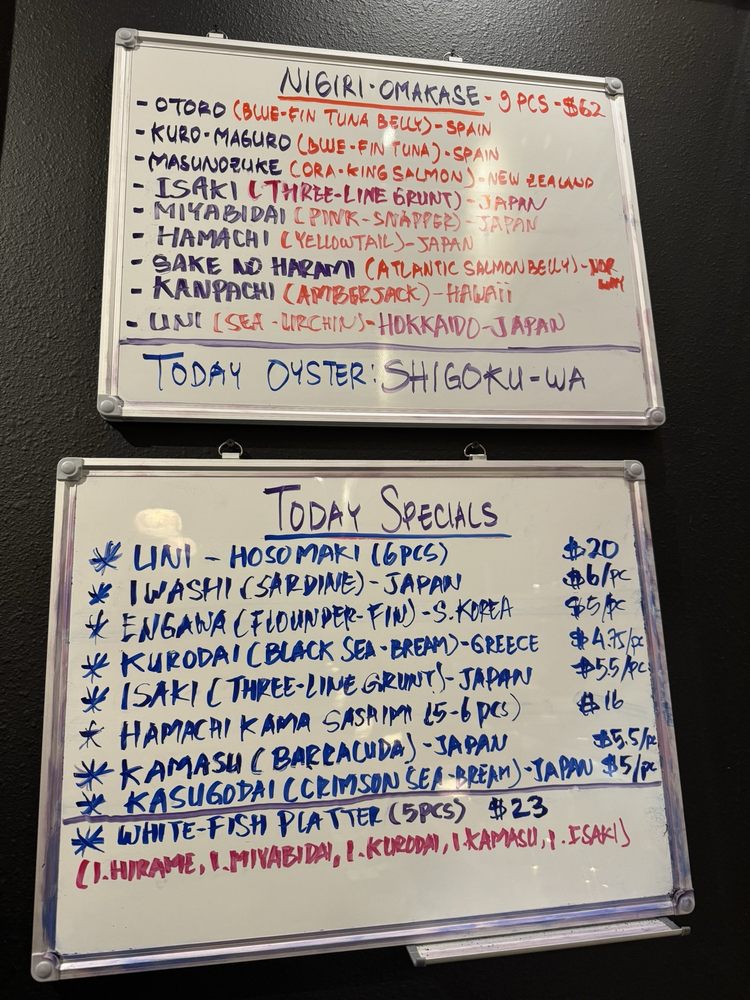 NIGIRI·OMAKASE - 9 PCS - $62
- OTORO (BLUE-FIN TUNA BELLY) - SPAIN
- KURO-MAGURO (BLUE-FIN TUNA) - SPAIN
- MASUNOZUKE (ORA-KING SALMON) - NEW ZEALAND
- ISAKI (THREE-LINE GRUNT) - JAPAN
- MIYABIDAI (PINK-SNAPPER) - JAPAN
- HAMACHI (YELLOWTAIL) - JAPAN
- SAKE NO HARAMI (ATLANTIC SALMON BELLY) - NORWAY
- KANPACHI (AMBERJACK) - HAWAII
- UNI (SEA-URCHIN) - HOKKAIDO-JAPAN
TODAY OYSTER: SHIGOKU-WA
TODAY SPECIALS
* UNI - HOSOMAKI (6PCS) $20
* IWASHI (SARDINE) - JAPAN $6/PC
* ENGAWA (FLOUNDER-FIN) - S.KOREA $5/PC
* KURODAI (BLACK SEA-BREAM) - GREECE $4.75/PC
* ISAKI (THREE-LINE GRUNT) - JAPAN $5.5/PC
* HAMACHI KAMA SASAIMI (5-6 PCS) $16
* KAMASU (BARRACUDA) - JAPAN $5.5/PC
* KASUGODAI (CRIMSON SEA-BREAM) - JAPAN $5/PC
* WHITE-FISH PLATTER (5PCS) $23
(1.HIRAME, 1.MIYABIDAI, 1.KURODAI, 1.KAMASU, 1.ISAKI)